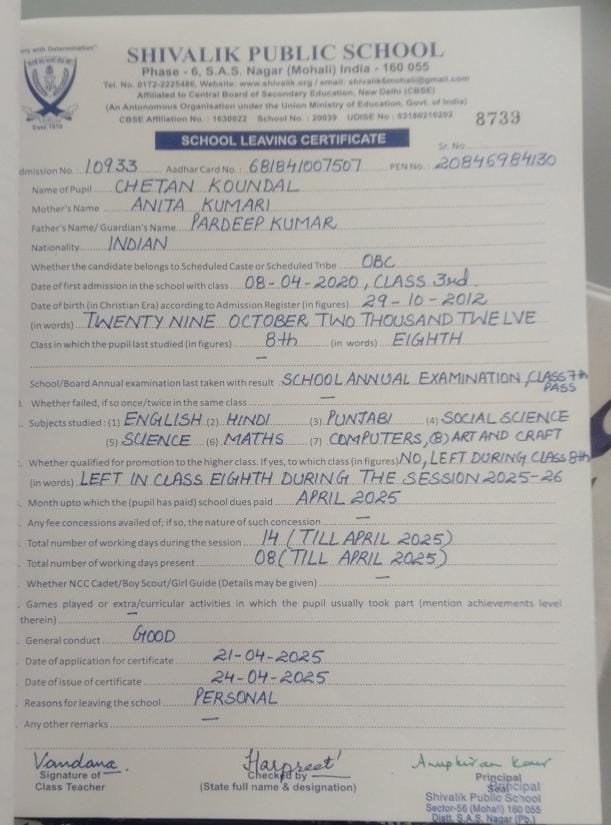 ery with Determination"
Estd. 1970
SHIVALIK PUBLIC SCHOOL
Phase - 6, S.A.S. Nagar (Mohali) India - 160 055
Tel. No. 0172-2225486, Website: www.shivalik.org / email: shivalik6mohali@gmail.com
Affiliated to Central Board of Secondary Education, New Delhi (CBSE)
(An Antonomous Organisation under the Union Ministry of Education, Govt. of India)
CBSE Affiliation No. : 1630022 School No. : 20039 UDISE No : 03160210202 8739
SCHOOL LEAVING CERTIFICATE
Sr. No.
dmission No. : 10933 Aadhar Card No. : 681841007507 PEN No. : 20846984130
Name of Pupil CHETAN KOUNDAL
Mother's Name ANITA KUMARI
Father's Name/ Guardian's Name PARDEEP KUMAR
Nationality INDIAN
Whether the candidate belongs to Scheduled Caste or Scheduled Tribe OBC
Date of first admission in the school with class 08-04-2020, CLASS 3rd.
Date of birth (in Christian Era) according to Admission Register (in figures) 29-10-2012
(in words) TWENTY NINE OCTOBER TWO THOUSAND TWELVE
Class in which the pupil last studied (in figures) 8th (in words) EIGHTH
—
School/Board Annual examination last taken with result SCHOOL ANNUAL EXAMINATION, CLASS 7th PASS
Whether failed, if so once/twice in the same class —
Subjects studied : (1) ENGLISH (2) HINDI (3) PUNJABI (4) SOCIAL SCIENCE
(5) SCIENCE (6) MATHS (7) COMPUTERS, (8) ART AND CRAFT
Whether qualified for promotion to the higher class. If yes, to which class (in figures) NO, LEFT DURING CLASS 8th
(in words) LEFT IN CLASS EIGHTH DURING THE SESSION 2025-26
Month upto which the (pupil has paid) school dues paid APRIL 2025
Any fee concessions availed of; if so, the nature of such concession —
Total number of working days during the session 14 (TILL APRIL 2025)
Total number of working days present 08 (TILL APRIL 2025)
Whether NCC Cadet/Boy Scout/Girl Guide (Details may be given) —
Games played or extra/curricular activities in which the pupil usually took part (mention achievements level
therein) —
General conduct GOOD
Date of application for certificate 21-04-2025
Date of issue of certificate 24-04-2025
Reasons for leaving the school PERSONAL
Any other remarks —
Vandana. Harpreet Anupkiran Kaur
Signature of Class Teacher
Checked by
(State full name & designation)
Principal
Seal
Principal
Shivalik Public School
Sector-56 (Mohali) 160 055
Distt. S.A.S. Nagar (Pb.)